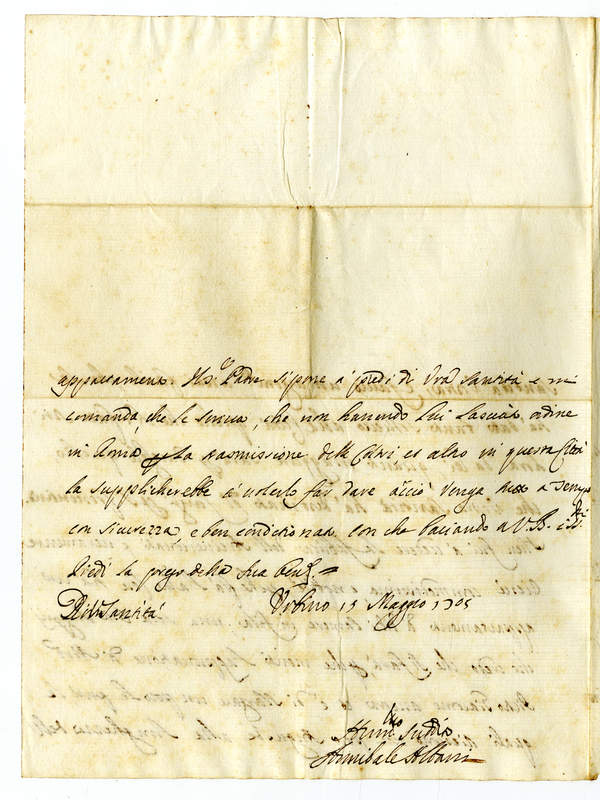 appartamento. Il S.r Padre si pone a' piedi di Vra Santità e mi
comanda, che le scriva, che non havendo lui lasciato ordine
in Roma p la trasmissione delle Coltri et altro in questa Città
la supplicherebbe à volerlo far dare acciò venga tutto a tempo
con sicurezza, e ben conditionata. Con che baciando a V. B. i SS.mi
Piedi la prego della Sua Ben.ne
Di V. Santità
Urbino 15 Maggio 1705
Humil.mo Suddito
Annibale Albani